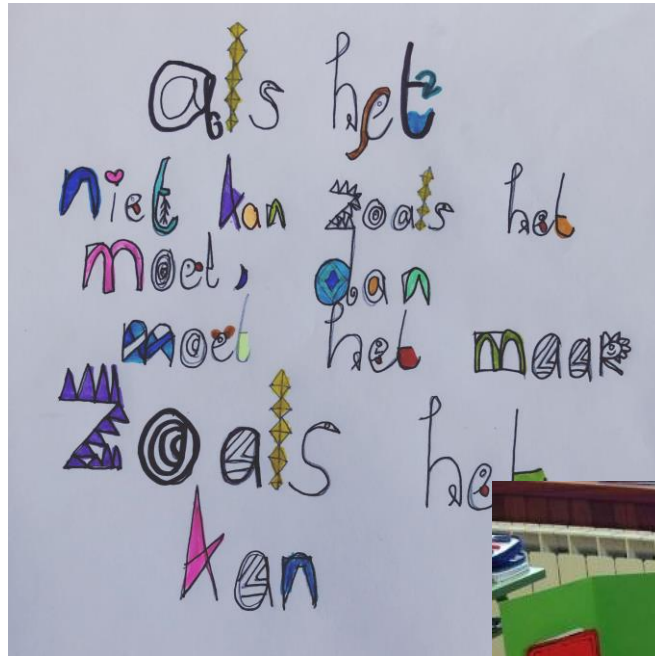 als het
niet kan zoals het
moet, dan
moet het maar
Zoals het
kan